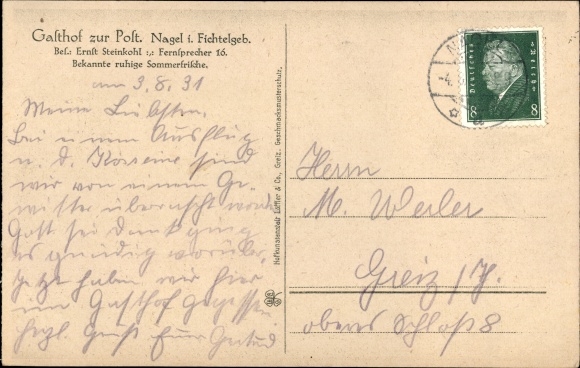 Gasthof zur Post. Nagel i. Fichtelgeb.
Bes.: Ernst Steinkohl :,: Fernsprecher 16.
Bekannte ruhige Sommerfrische.
am 3.8.31
Meine Liebsten.
Bei einem Ausflug
n. d. Kösseine sind
wir von einem Ge-
witter überrascht worden
Gott sei dank ging
es gnädig vorüber,
Jetzt haben wir hier
im Gasthof gegessen
Herzl. Gruß Eure
Hofkunstanstalt Löffler & Co., Greiz. Geschmacksmusterschutz.
Deutsches Reich
8 8
Herrn
M. Weiler
Greiz
oberes Schloß 8